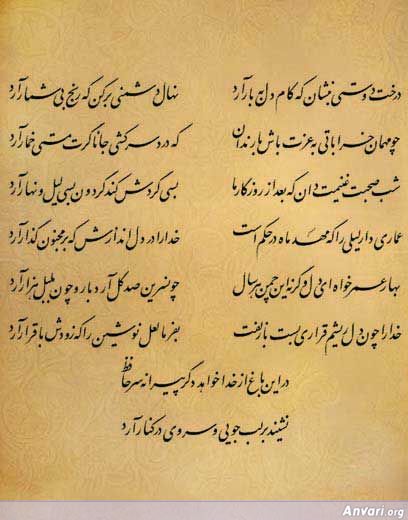 درخت دوستی بنشان که کام دل به بار آرد نهال دشمنی برکن که رنج بی شمار آرد
چو مهمان خراباتی به عزت باش با رندان که درد سر کشی جانا گرت مستی خمار آرد
شب صحبت غنیمت دان که بعد از روزگار ما بسی گردش کند گردون بسی لیل و نهار آرد
عماری دار لیلی را که مهد ماه در حکم است خدا را در دل اندازش که بر مجنون گذار آرد
بهار عمر خواه ای دل وگرنه این چمن هر سال چو نسرین صد گل آرد بار و چون بلبل هزار آرد
خدا را چون دل ریشم قراری بست با زلفت بفرما لعل نوشین را که زودش با قرار آرد
در این باغ از خدا خواهد دگر پیرانه سر حافظ
نشیند بر لب جویی و سروی در کنار آرد
Anvari.org